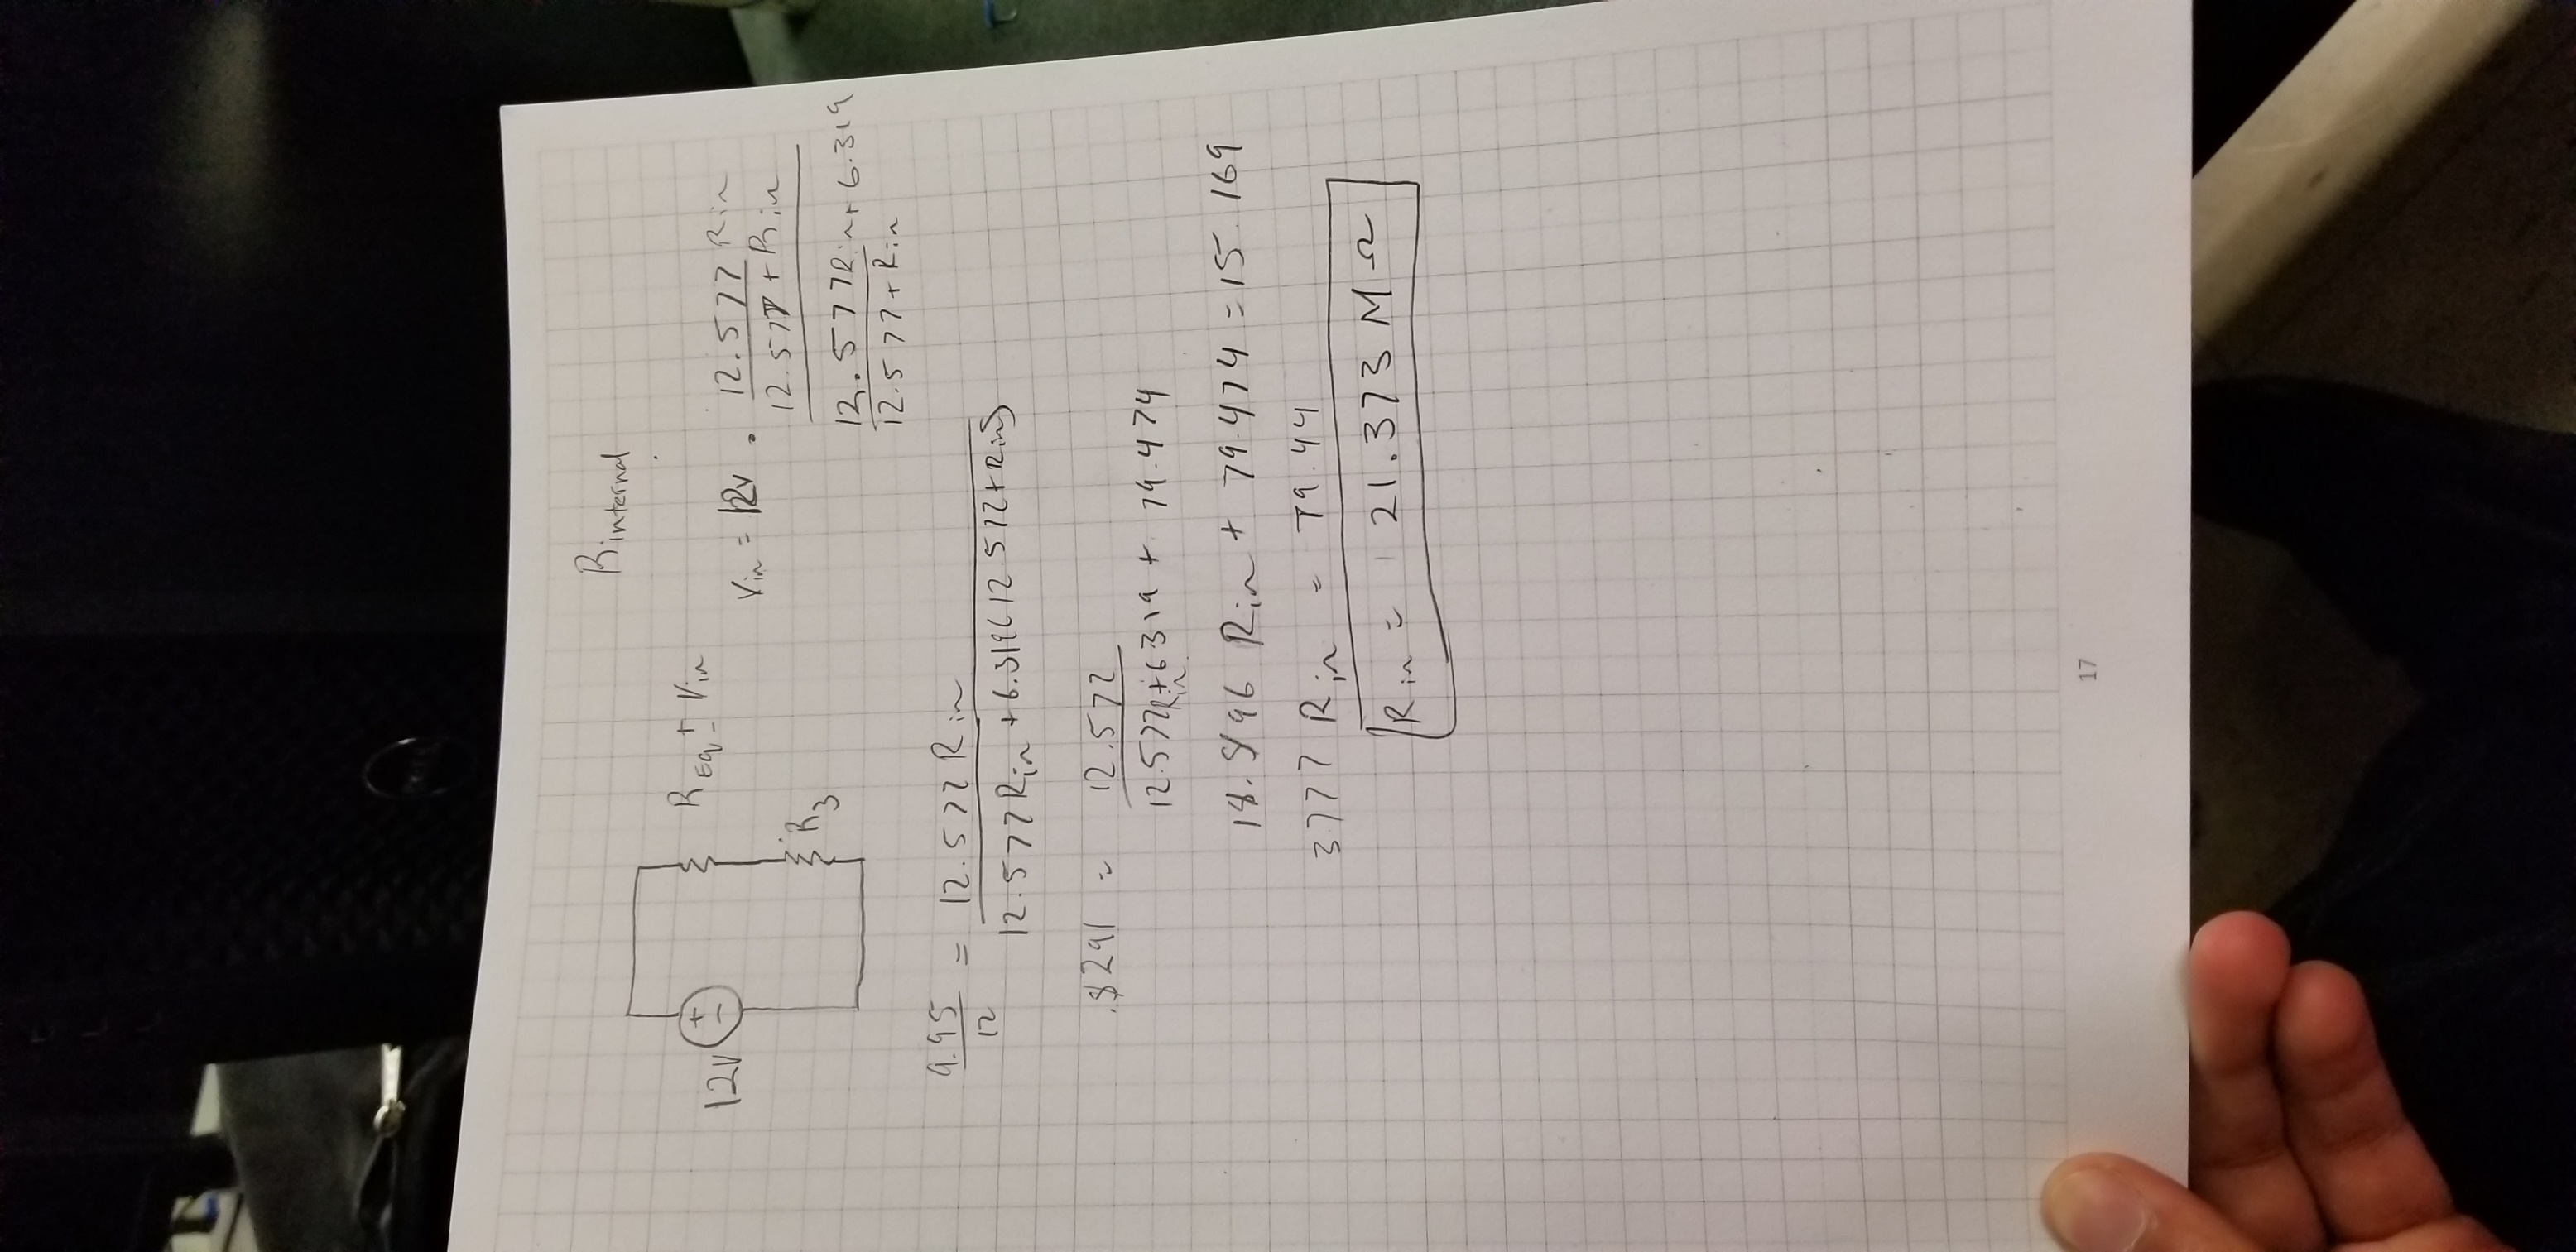 Rinternal
12V
REq + Vin
-
R3
Vin = 12V · 12.577 Rin
12.577 + Rin
12.577Rin + 6.319
12.577 + Rin
9.95 = 12.577 Rin
12 12.577 Rin + 6.319(12.577+Rin)
.8291 = 12.577
12.577Rin+6.319 + 79.474
18.896 Rin + 79.474 = 15.169
3.777 Rin = 79.44
Rin = 21.373 MΩ
17
DELL